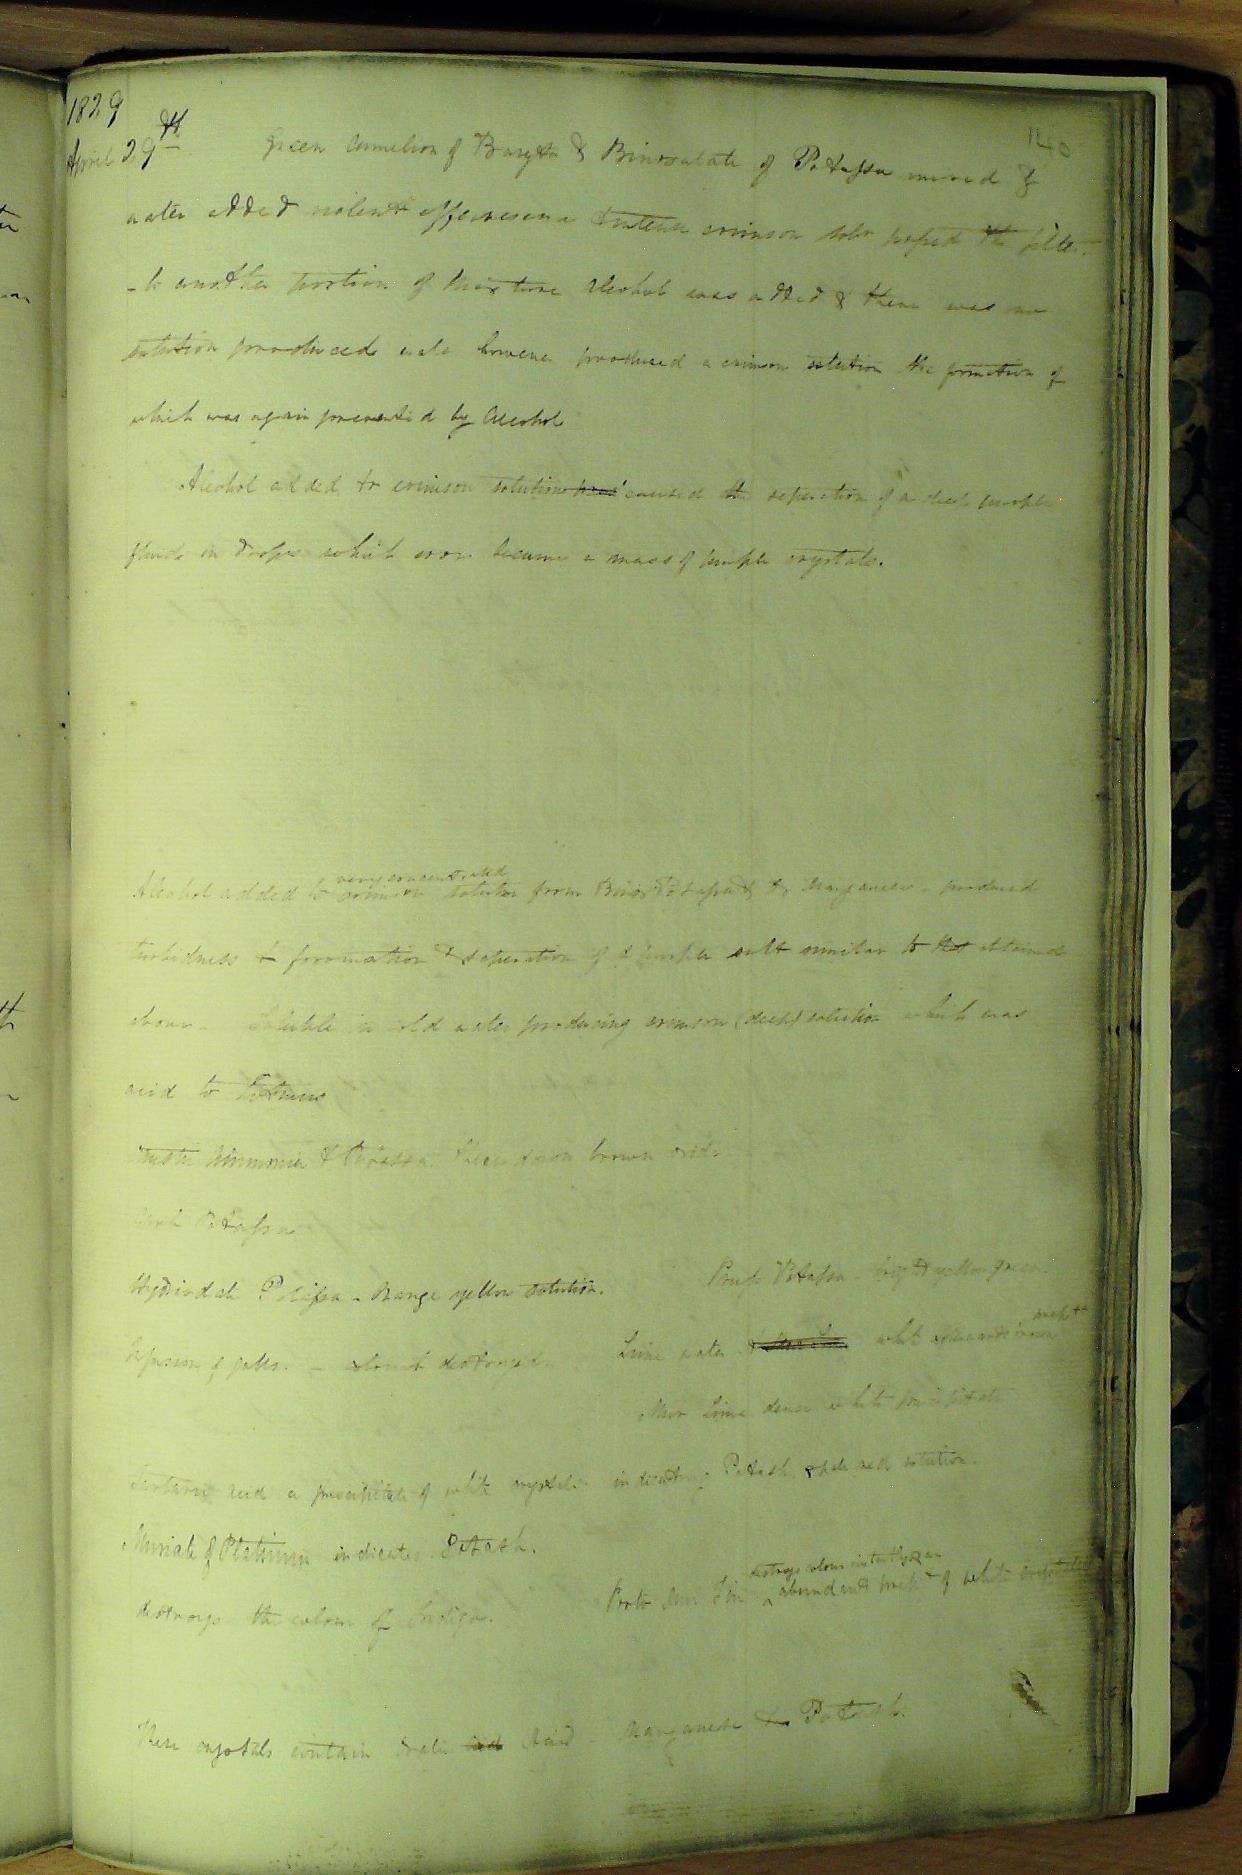 1829
140
April 29th Green Camelion of Baryta & Binoxalate of Potassa mixed &
water added violent effervescence & intense crimson soln passed the filter.
- to another portion of Mixture Alcohol was added & there was no
solution produced water however produced a crimson solution the formation of
which was again prevented by Alcohol
Alcohol added to crimson solution caused the separation of a deep purple
fluid in drops which soon became a mass of purple crystals.
very concentrated
Alcohol added to crimson solution from Binox Potassa & Manganese - produced
turbidness & formation & separation of a purple salt similar to that obtained
above - Soluble in cold water producing crimson (deep) solution which was
acid to Litmus
Ammonia & Potassa throw down brown oxide
Potassa
Hydriodate Potassa - Orange yellow solution.
Prus Potassa bright yellow green.
Infusion of galls. - colour destroyed
Lime water white afterwards brown
More Lime dense white precipitate
Tartaric acid a precipitate of white crystals indicating Potash & pale red solution.
Muriate of Platinum indicates Potash.
destroys colour instantly & an
Proto Mur Tin abundant precp of white crystals
destroys the colour of Indigo.
These crystals contain Oxalic Acid - Manganese & Potash.